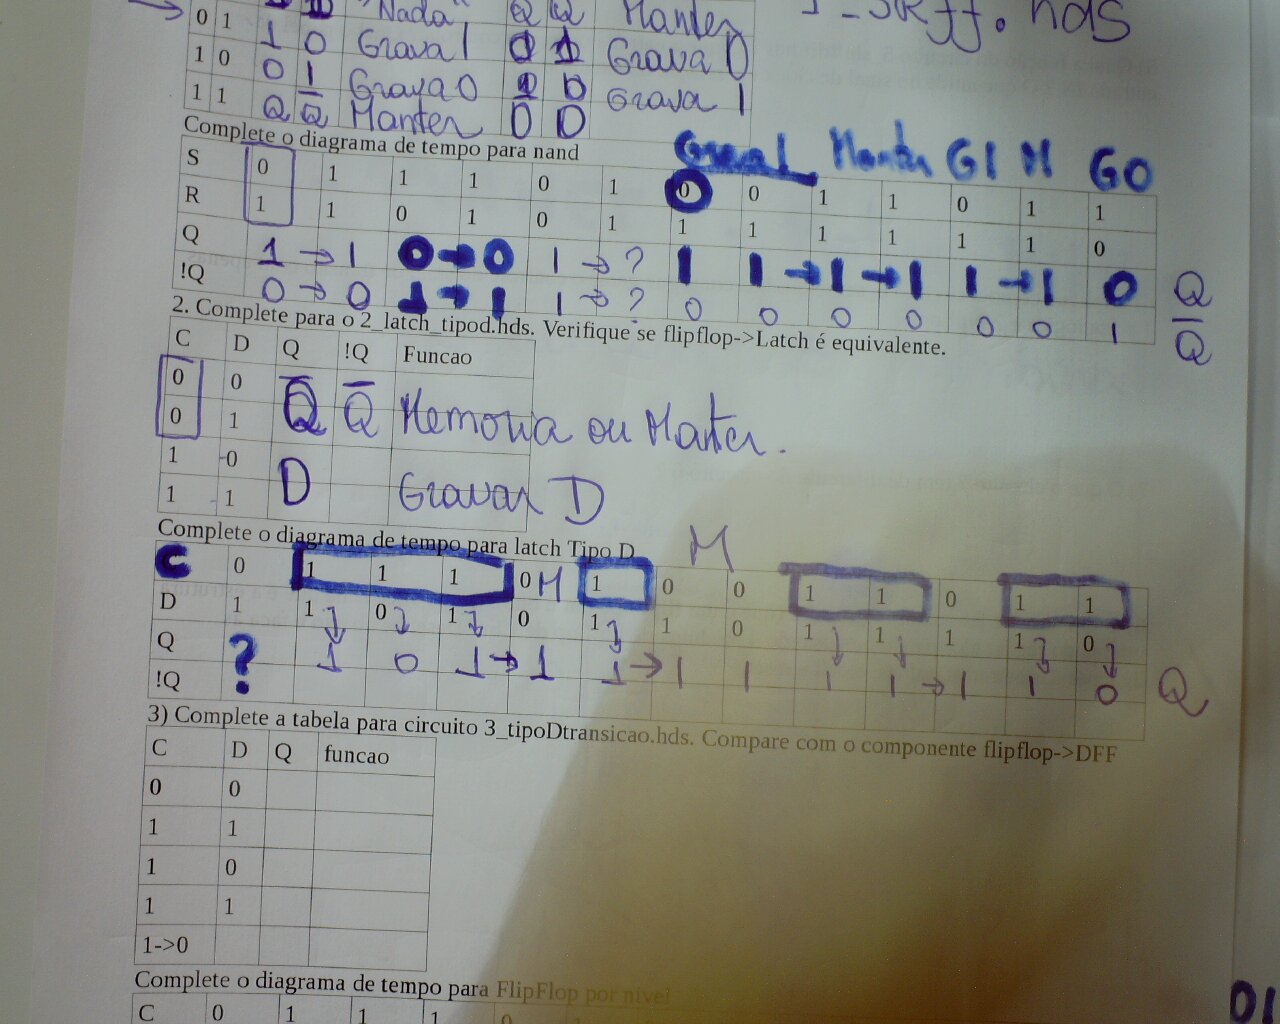 0 1 "Nada" Q Q Manter
1 0 1 0 Grava 1 0 1 Grava 0
1 0 0 1 Grava 0 1 0 Grava 1
1 1 Q Q̅ Manter 0 0
Complete o diagrama de tempo para nand
Manter G1 M G0
S 0 1 1 1 0 1 0 0 1 1 0 1 1
R 1 1 0 1 0 1 1 1 1 1 1 1 0
Q 1 → 1 0 → 0 1 → ? 1 1 → 1 → 1 1 → 1 0 Q
!Q 0 → 0 1 → 1 1 → ? 0 0 0 0 0 0 1 Q̅
2. Complete para o 2_latch_tipod.hds. Verifique se flipflop->Latch é equivalente.
C D Q !Q Funcao
0 0
Q̅ Q̅ Memoria ou Manter.
0 1
1 0
D Gravar D
1 1
Complete o diagrama de tempo para latch Tipo D
M
C 0 1 1 1 0 M 1 0 0 1 1 0 1 1
D 1 1 0 1 0 1 1 0 1 1 1 1 0
Q ? 1 0 1 → 1 1 → 1 1 1 1 → 1 1 0 Q
!Q
3) Complete a tabela para circuito 3_tipoDtransicao.hds. Compare com o componente flipflop->DFF
C D Q funcao
0 0
1 1
1 0
1 1
1->0
Complete o diagrama de tempo para FlipFlop por nivel
C 0 1 1 1 0